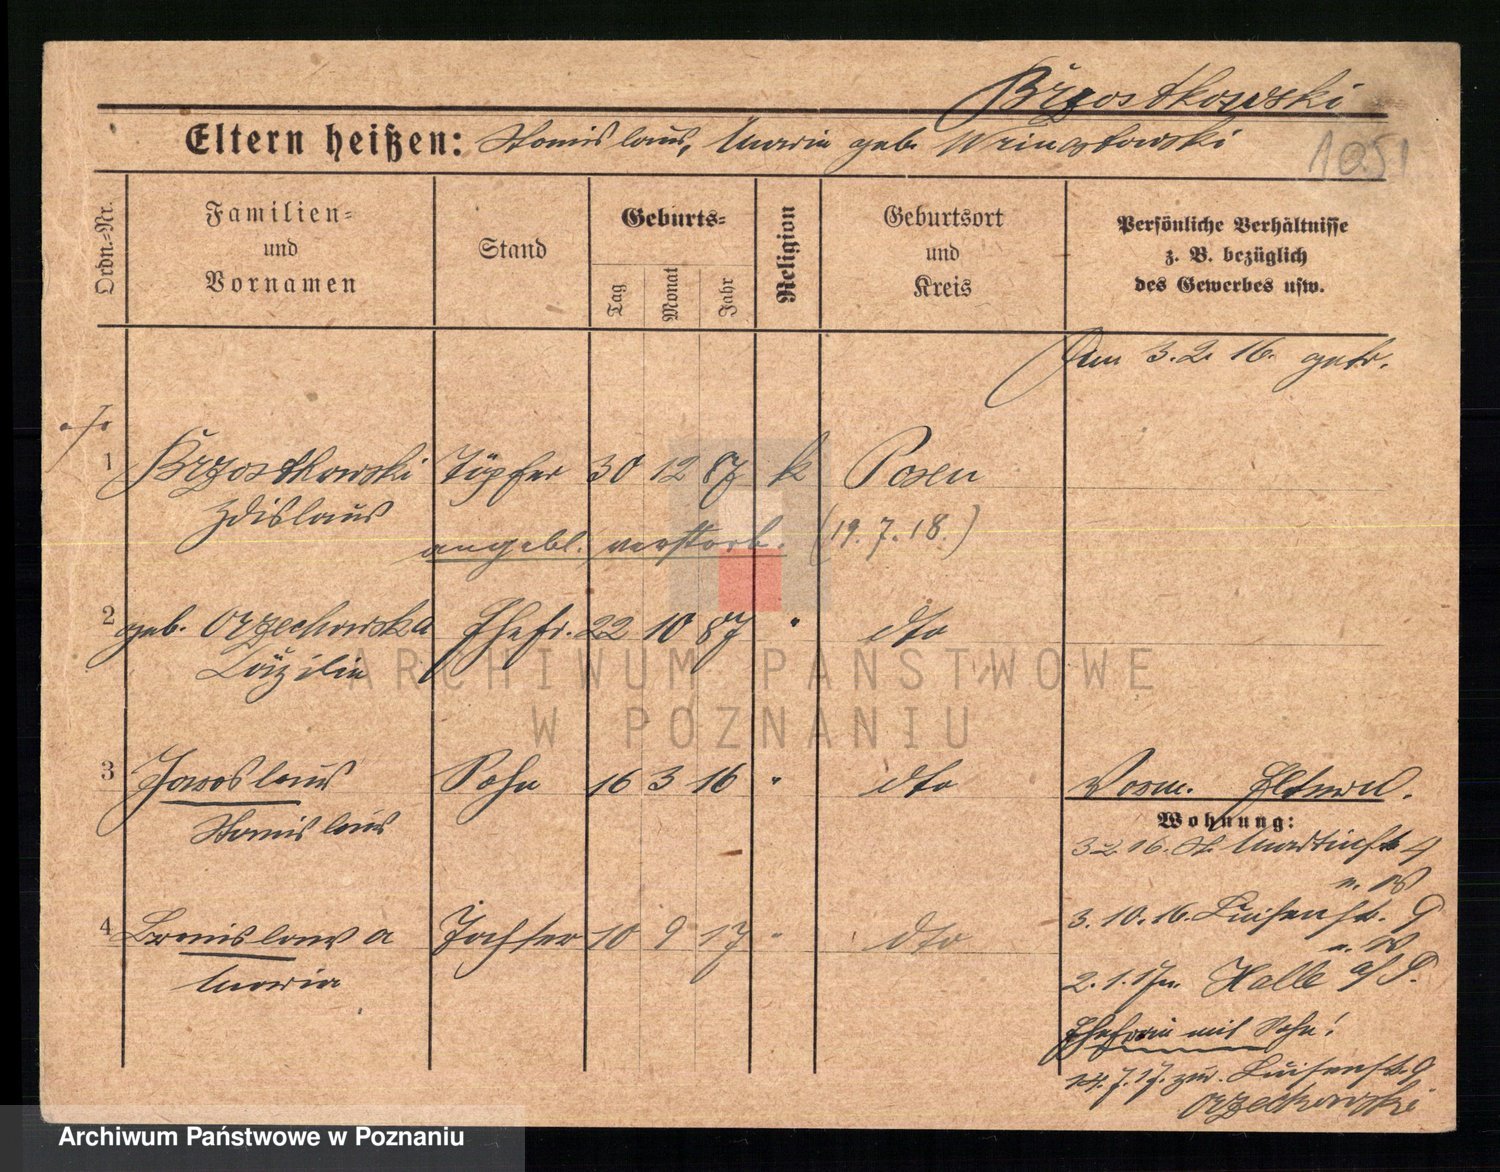 Brzostkowski
Eltern heißen: Stanislaus, Maria geb.
1051
Ordn.-Nr.
Familien-
und
Vornamen
Stand
Geburts-
Tag
Monat
Jahr
Religion
Geburtsort
und
Kreis
Persönliche Verhältnisse
z. B. bezüglich
des Gewerbes usw.
Am 3.2.16. getr.
1 Brzostkowski Töpfer 30 12 87 k Posen
Zdislaus
angebl. verstorb. (19.7.18.)
2 geb. Orzechowska Ehefr. 22 10 87 " dto
Cäzilie
ARCHIWUM PAŃSTWOWE
W POZNANIU
3 Jaroslaus Sohn 16 3 16 " dto
Stanislaus
Vorm. Eltern.
Wohnung:
3.2.16. St. Martinstr. 4
3.10.16. Luisenstr. 9
4 Bronislawa Tochter 10 9 17 " dto
Maria
2.1.17 Halle a/S.
Ehefrau mit Sohn!
14.7.17. zur. Luisenstr. 9
Orzechowski
Archiwum Państwowe w Poznaniu